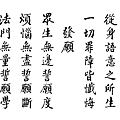 從身語意之所生
一切罪障皆懺悔
發願
眾生無邊誓願度
煩惱無盡誓願斷
法門無量誓願學